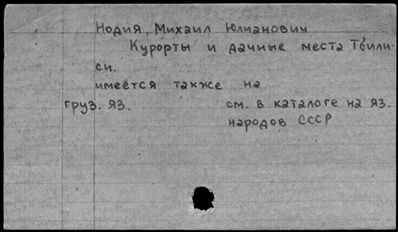 Нодия, Михаил Юлианович
Курорты и дачные места Тбили-
си.
имеется также на
груз. яз. см. в каталоге на яз.
народов СССР